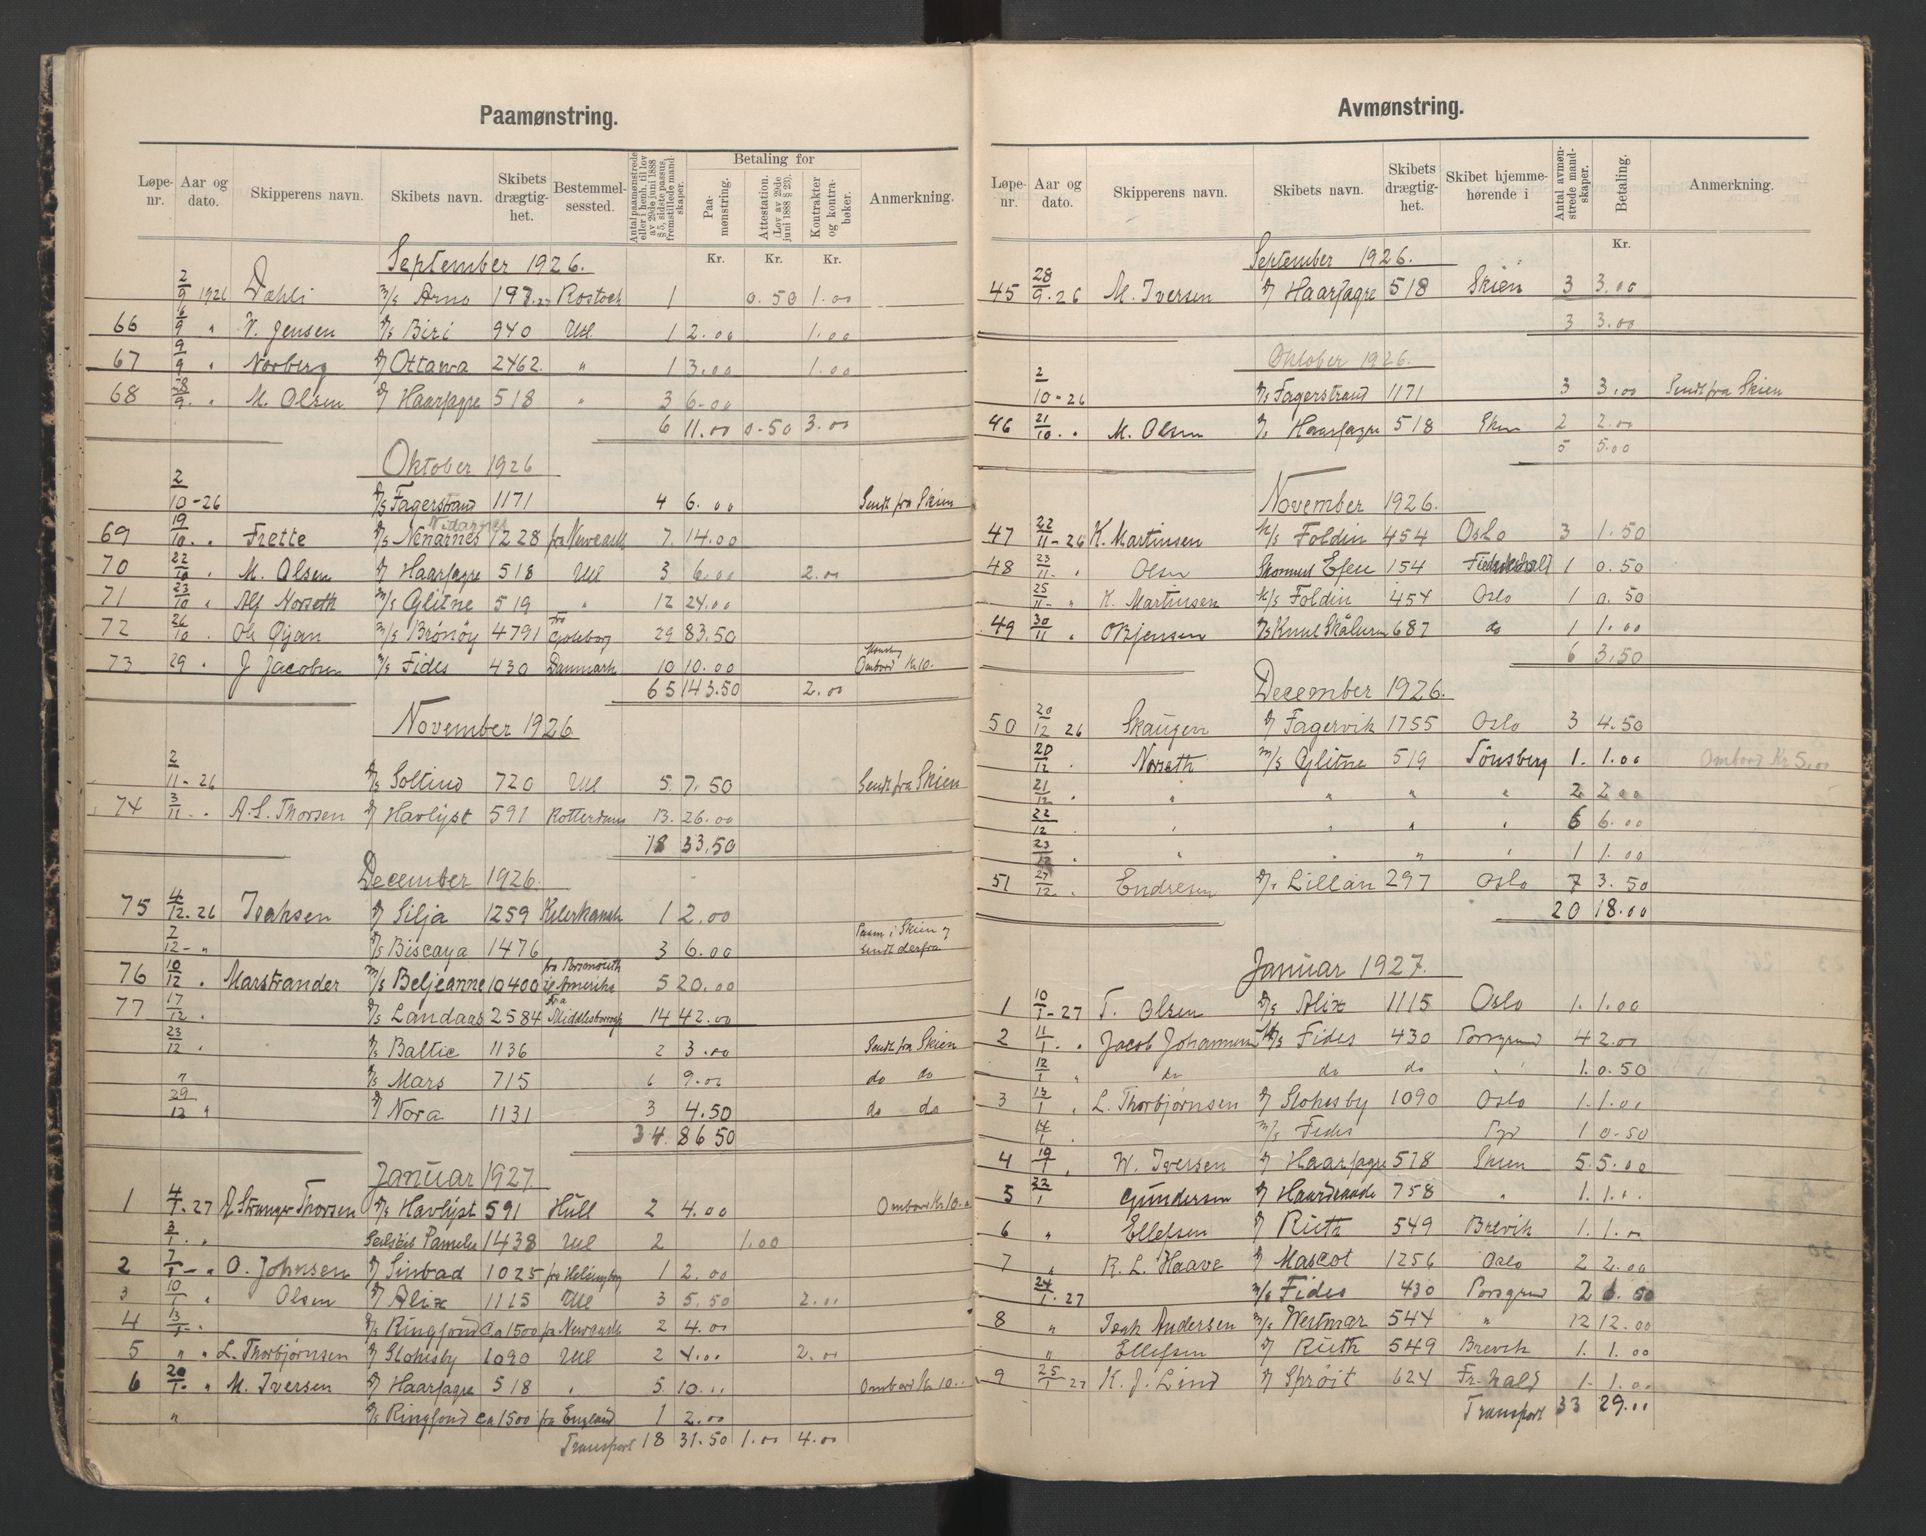 Paamønstring.
Løpe-nr. Aar og dato. Skipperens navn. Skibets navn. Skibets drægtig-het. Bestemmel-sessted. Antal paamønstrede eller i henh. til lov av 29de juni 1888 § 5, sidste passus, fremstillede mand-skaper. Betaling for Paa-mønstring. Attestation. (Lov av 29de juni 1888 § 23). Kontrakter og kontra-bøker. Anmerkning.
Kr. Kr. Kr.
September 1926.
2/9 1926 Dahli M/S Arno 197.27 Rostock 1 0.50 1.00
66 6/9 " W. Jensen D/S Biri 940 Utl 1 2.00 1.00
67 9/9 " Norberg D/ Ottawa 2462. " 1 3.00 1.00
68 28/9 " M. Olsen D/ Haarfagre 518 " 3 6.00
6 11.00 0.50 3.00
Oktober 1926
2/10-26 D/S Fagerstrand 1171 4 6.00 Sendt fra Skien
Vidarnes
69 19/10 " Frette D/S Nenarnes 1228 fra Newcastle 7. 14.00
70 22/10 " M. Olsen D/ Haarfagre 518 Utl 3 6.00 2.00
71 23/10 " Alf Norseth M/S Glitne 519 " 12 24.00
72 26/10 . Ole Øyan M/S Brønøy 4791 Fra Goteborg 29 83.50
73 29 " J Jacobsen M/S Fides 430 Danmark 10 10.00 Ombord Kr 10.
65 143.50 2.00
November 1926
2/11-26 D/S Soltind 720 Utl 5. 7.50 Sendt fra Skien
74 3/11 . A. L. Thorsen D/ Havlyst 591 Rotterdam 13. 26.00
18 33.50
December 1926.
75 4/12.26 Isaksen D/ Silja 1259 1 2.00
7/12-" D/S Biscaya 1476 3 6.00 Paam i Skien og sendt derfra
76 10/12 " Marstrander M/S Beljeanne 10400 til Amerika 5 20.00
77 17/12. D/S Landaas 2584 Fra Middlesborough 14 42.00
23/12 " D/S Baltic 1136 2 3.00 Sendt fra Skien
" D/S Mars 715 6 9.00 do do
29/12 " D/ Nora 1131 3 4.50 do do
34. 86 50
Januar 1927.
1 4/1.27 A. Stranger Thorsen D/S Havlyst 591 Hull 2 4.00 Ombord Kr 10.
3/1. " Seilskib Pamelia 1438 Utl 2 1.00
2 7/1-" O. Johnsen D/ Sinbad 1025 fra Helsingborg 1 2.00
3 10/1 " Olsen D/ Alix 1115 Utl 3 5.50 2.00
4 13/1-. D/S Ringfond ca 1500 fra Newcastle 2 4.00
5 " " L. Thorbjørnsen D/ Stokesby 1090 Utl 2 4.00 2.00
6 20/1. " M. Iversen D/ Haarfagre 518 " 5 10.. Ombord Kr 10..
" D/S Ringfond ca 1500 fra England 1 2.00
Transport 18 31.50 1.00 4.00
Avmønstring.
Løpe-nr. Aar og dato. Skipperens navn. Skibets navn. Skibets drægtig-het. Skibet hjemme-hørende i Antal avmøn-strede mand-skaper. Betaling. Anmerkning.
Kr.
September 1926.
45 28/9.26 M. Iversen D/ Haarfagre 518 Skien 3 3.00
3 3.00
Oktober 1926.
2/10-26 D/S Fagerstrand 1171 3 3.00 Sendt fra Skien
46 21/10 . M. Olsen D/S Haarfagre 518 Skien 2 2.00
5 5.00
November 1926.
47 22/11-26 K. Martinsen M/S Foldin 454 Oslo 3 1.50
48 23/11. " Olsen Skonnert Efeu 154 1 0.50
25/11- " K. Martinsen M/S Foldin 454 Oslo 1 0.50
49 30/11 " O Bjensen D/S Knut Skålurin 687 do 1 1.00
6 3.50
December 1926.
50 20/12 26 Skaugen D/ Fagervik 1755 Oslo 3 4.50
20/12. Norseth M/S Glitne 519 Tønsberg 1. 1.00 Ombord Kr 5.00
21/12 . " " " " 2 2.00
22/12 . " " " " 6 6.00
23/12 . " " " " 1 1.00
51 27/12 . Endresen D/S Lillan 297 Oslo 7 3.50
20 18.00
Januar 1927.
1 10/1-27 T. Olsen D/S Alix 1115 Oslo 1. 1.00
2 11/1. . Jacob Johannesen M/S Fides 430 Porsgrund 4 2.00
12/1 " do do do " 1. 0.50
3 13/1 . L. Thorbjørnsen D/ Stokesby 1090 Oslo 1. 1.00
14/1. M/S Fides 1 0.50
4 19/1 . W. Iversen D/ Haarfagre 518 Skien 5. 5.00
5 22/1 Gundersen D/ Haardraade 758 " 1. 1.00
6 " Ellefsen D/ Ruth 549 Brevik 1. 1.00
7 " R. L. Haave D/ Mascot 1256 Oslo 2 2.00
24/1.27 M/S Fides 430 Porsgrund 2 50
8 " Isak Andersen M/S Westmar 544 " 12 12.00
" Ellefsen D/ Ruth 549 Brevik 1. 1.00
9 25/1 27 K. J. Lind D/ Sprøit 624 Fr-hald 1- 1.00
Transport 33 29.00